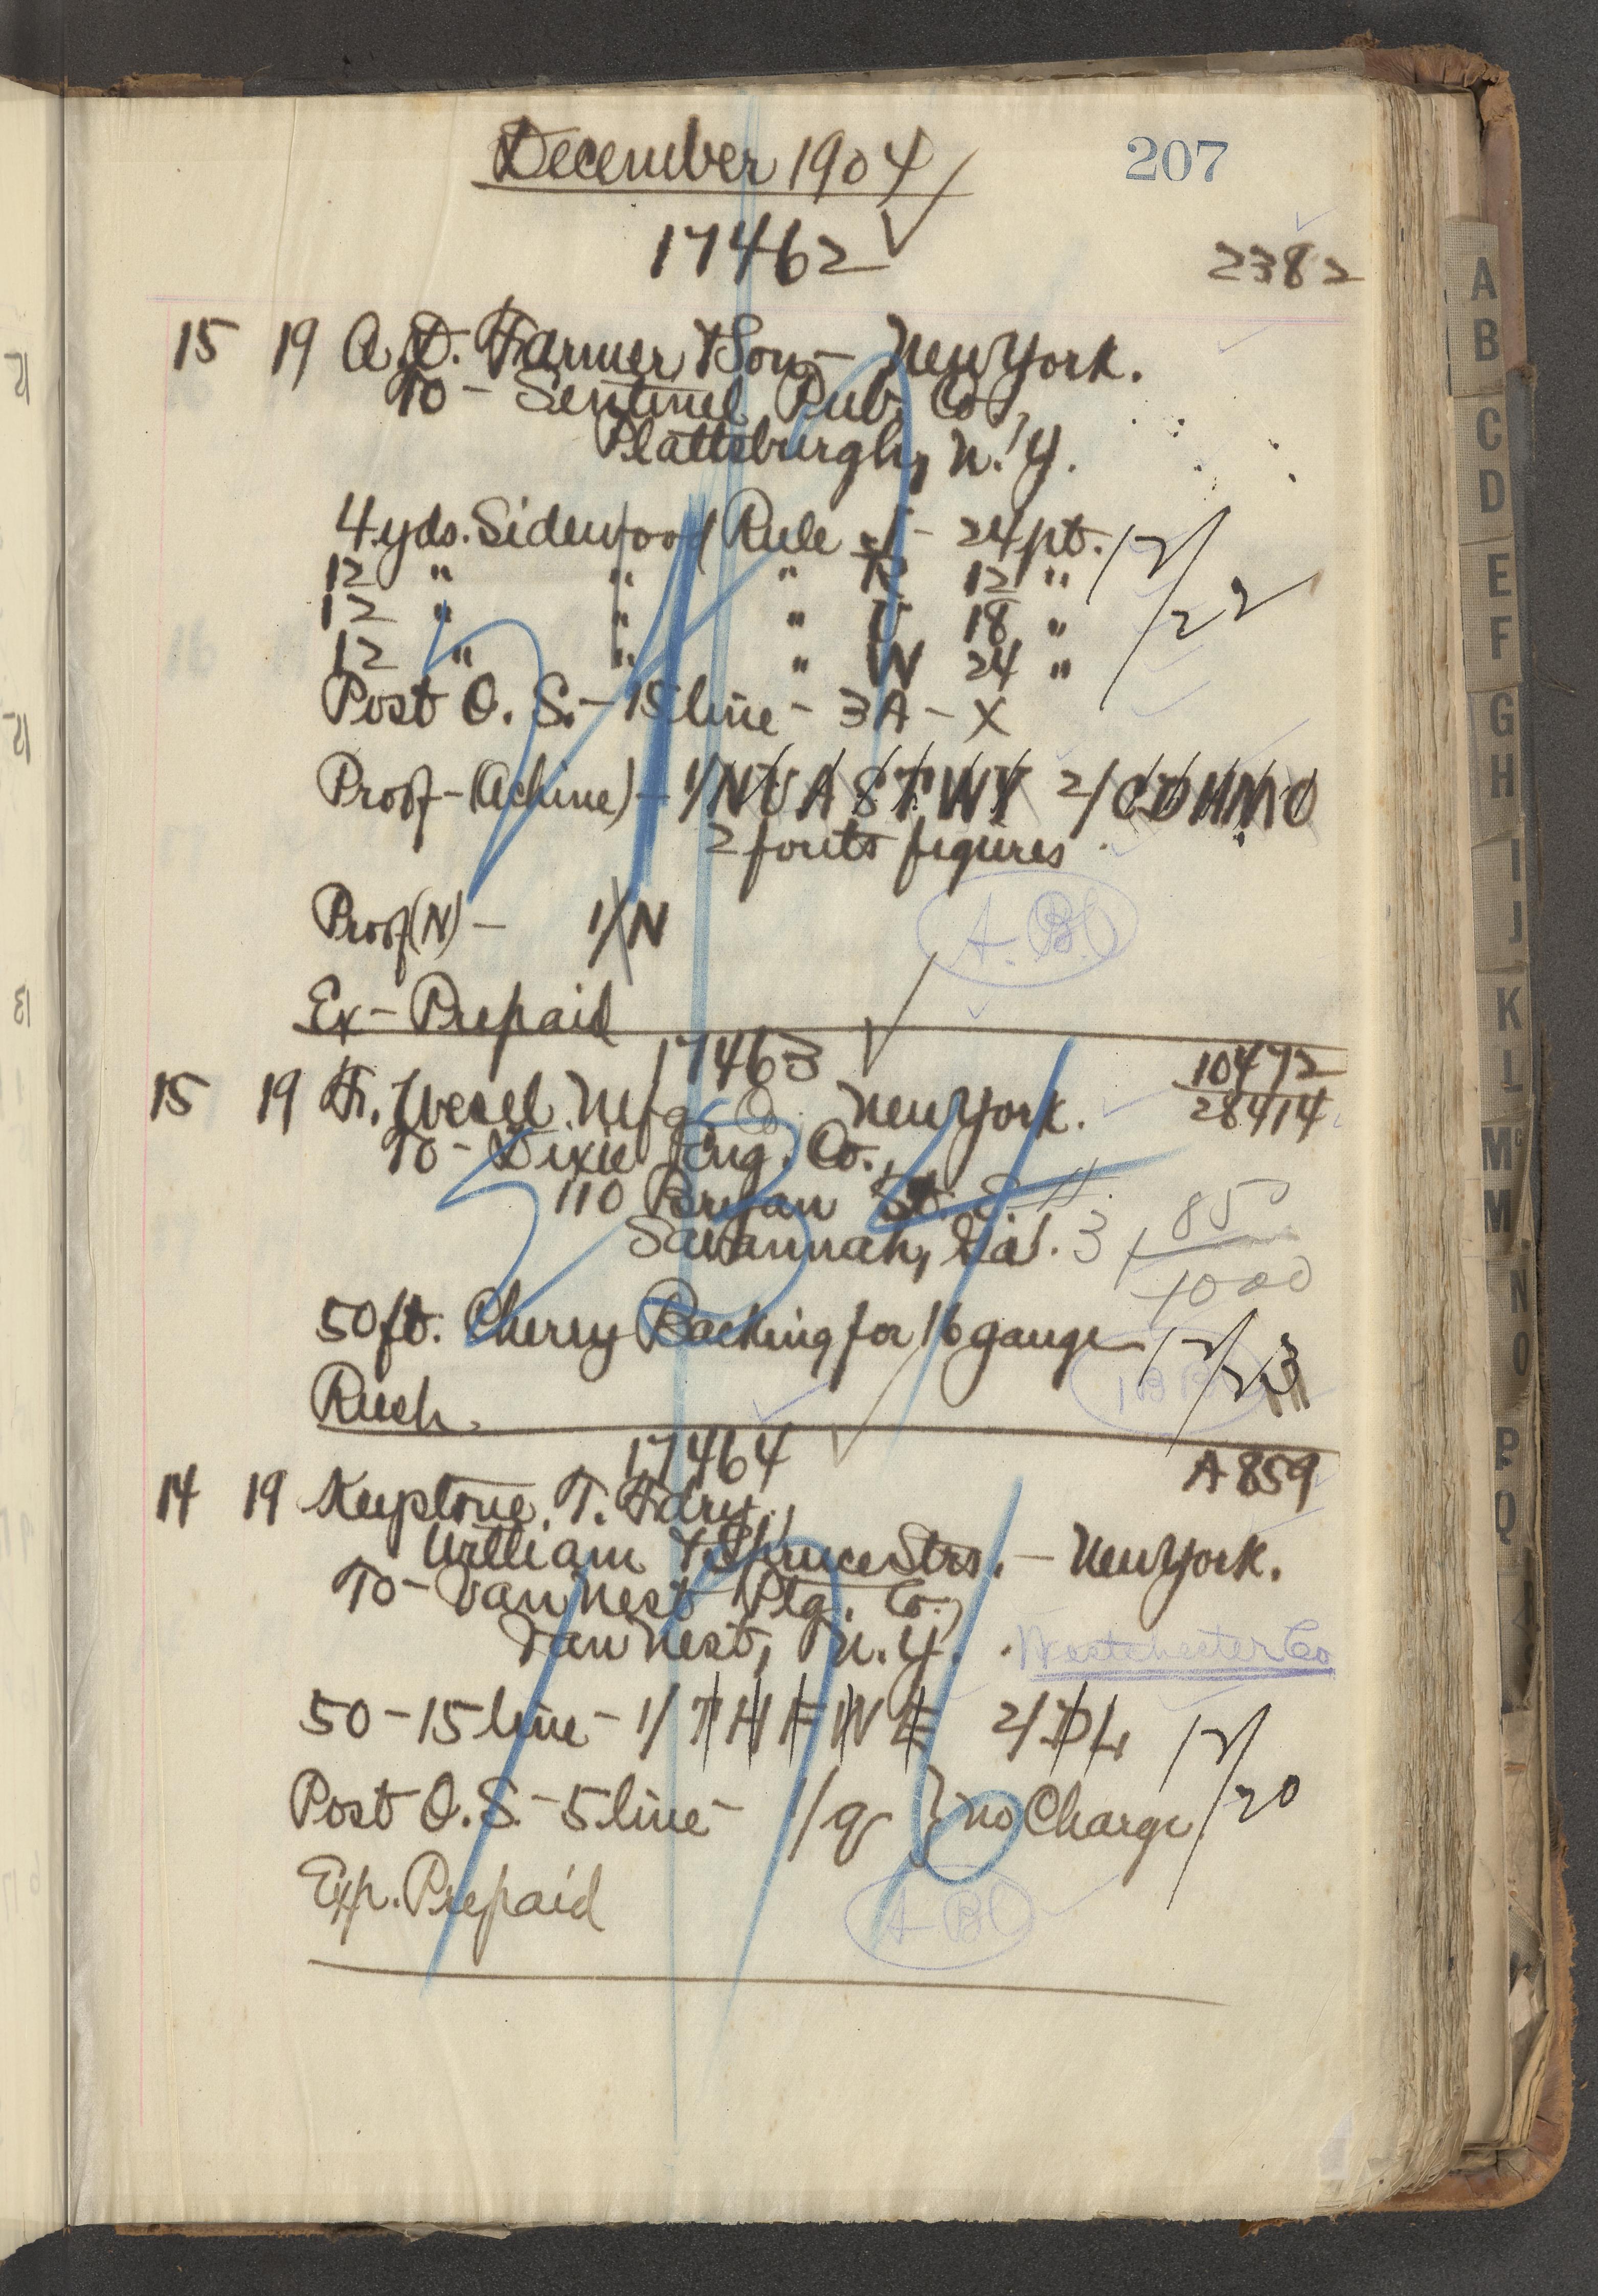 207
December 1904
17462
2382
15 19 A. D. Farmer & Son - New York.
To - Sentinel Pub. Co.,
Plattsburgh, N. Y.
4 yds. Sidewood Rule 24 pt.
12 " " " R 12 "
12 " " " U 18 "
12 " " " W 24 "
12/22
Post O. S. - 15 line - 3A - X
Proof - (Achine) - 1/ N U A S T W Y 2/ C D H M O
2 fonts figures
Proof (N) - 1/ N
A. Bl
Ex - Prepaid
17463
10472
28414
15 19 H. Wesel Mfg. Co. New York.
To - Dixie Eng. Co.,
110 Bryan St. E.
Savannah, Ga.
3 850
1000
50 ft. Cherry Backing for 16 gauge
12/23
Rush.
17464
A 859
14 19 Keystone T. Fdry.,
William & Spruce Strs. - New York.
To - Van Nest Ptg. Co.,
Van Nest, N. Y.
Westchester Co
50 - 15 line - 1/ T H E W E 2/ D L
12/20
Post O. S. - 5 line - 1/ g } no Charge
Exp. Prepaid
A. Bl
A
B
C
D
E
F
G
H
I
J
K
L
M
M
N
O
P
Q